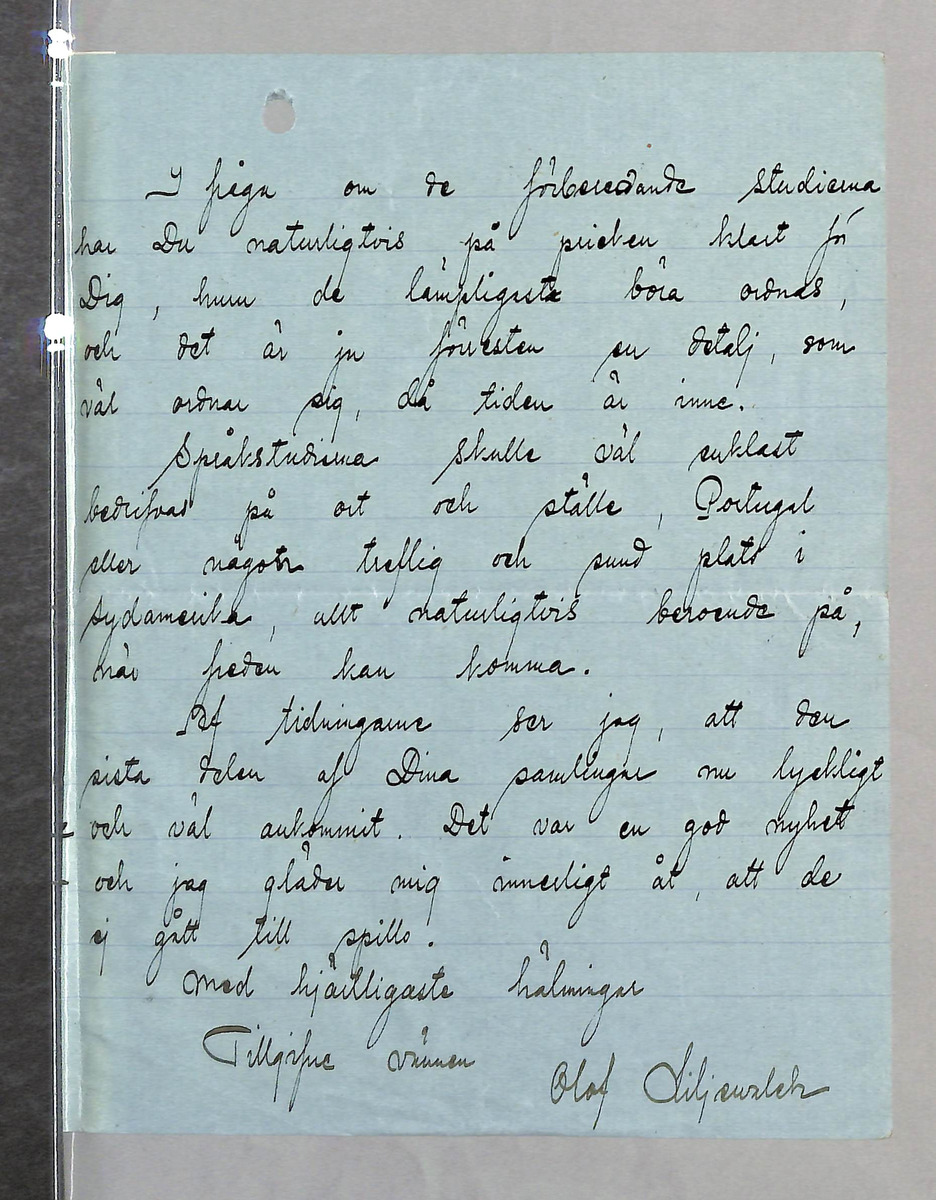 I fråga om de förberedande studierna
har Du naturligtvis på pricken klart för
Dig, huru de lämpligaste böra ordnas,
och det är ju förresten en detalj, som
väl ordnar sig, då tiden är inne.
Språkstudierna skulle väl enklast
bedrifvas på ort och ställe, Portugal
eller någon treflig och sund plats i
Sydamerika, allt naturligtvis beroende på,
när freden kan komma.
Af tidningarne ser jag, att den
sista delen af Dina samlingar nu lyckligt
och väl ankommit. Det var en god nyhet
och jag gläder mig innerligt åt, att de
ej gått till spillo.
Med hjärtligaste hälsningar
Tillgifne vännen
Olof Liljewalch